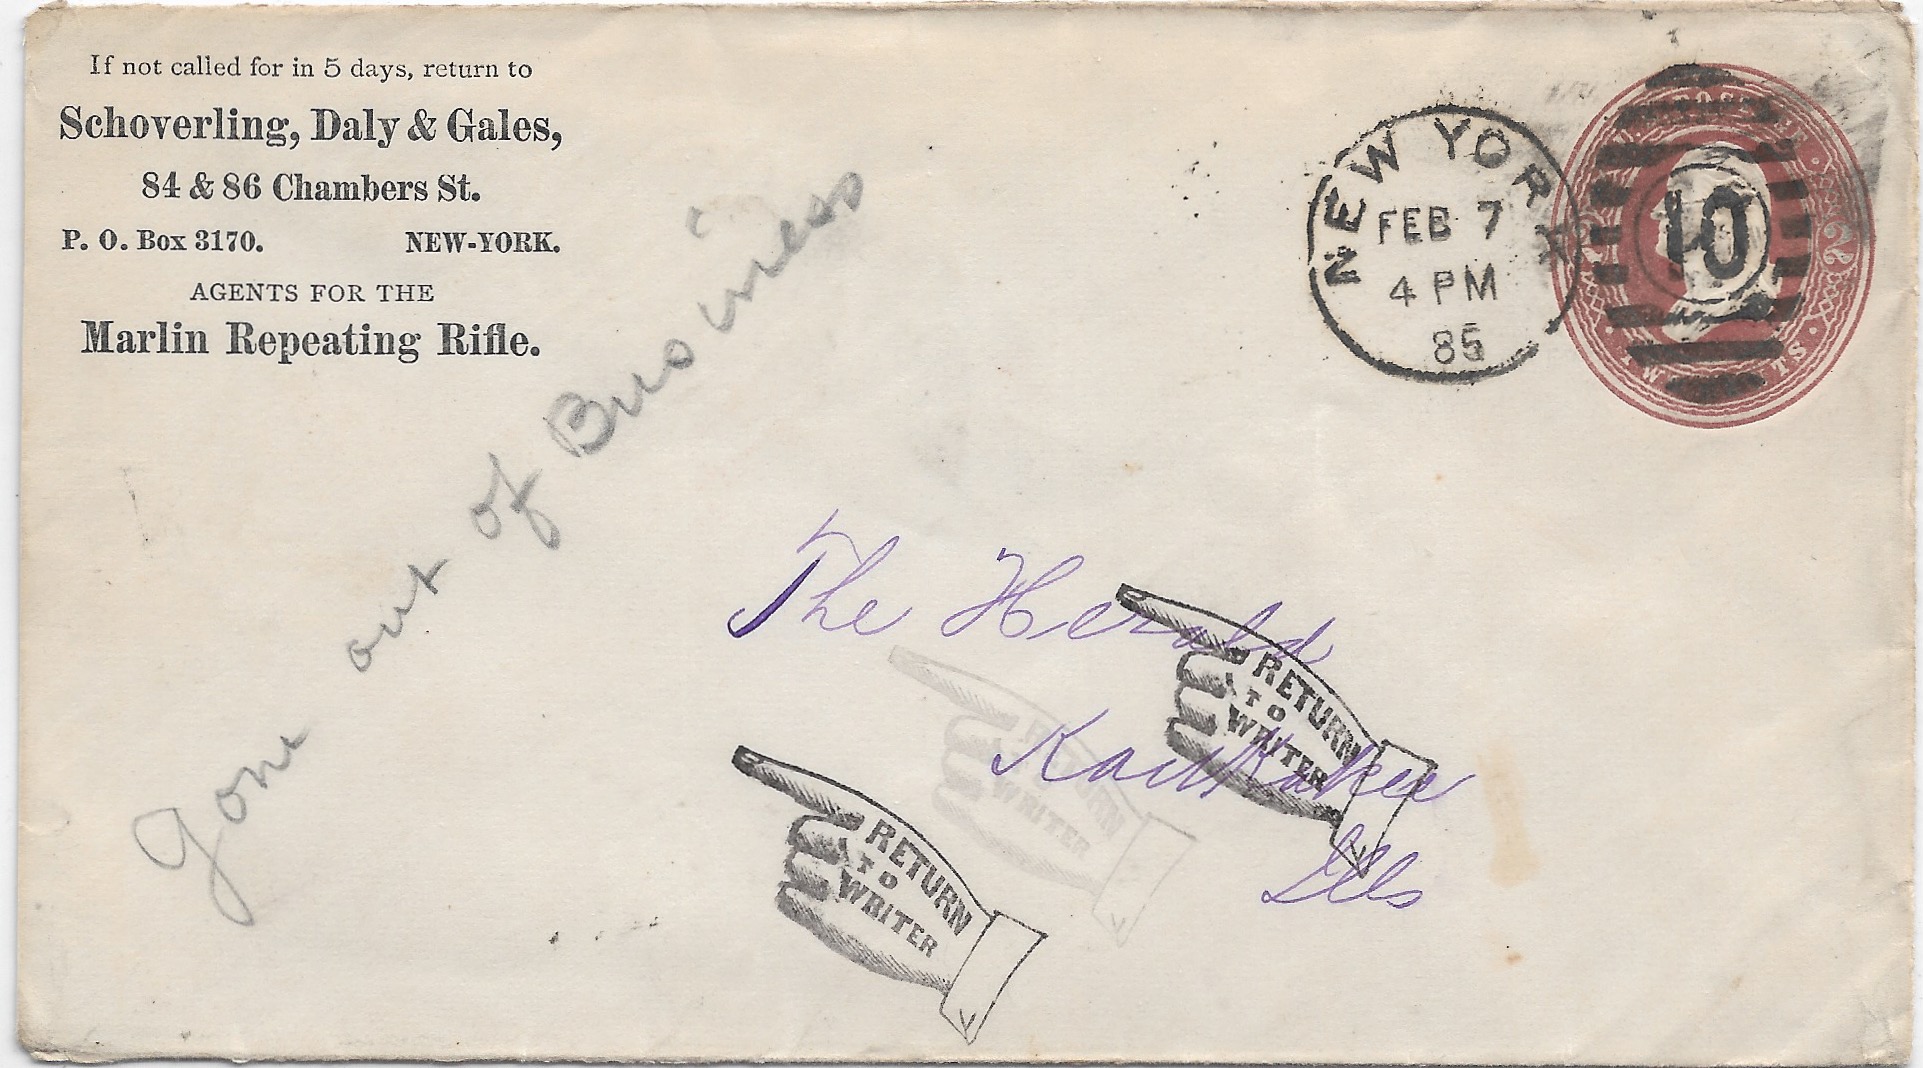 If not called for in 5 days, return to
Schoverling, Daly & Gales,
84 & 86 Chambers St.
P. O. Box 3170. NEW-YORK.
AGENTS FOR THE
Marlin Repeating Rifle.
NEW YOR
FEB 7
4 PM
85
10
2
TS
Gone out of Business
The Herald
Kankakee
Ills
RETURN
TO
WRITER
RETURN
TO
WRITER
RETURN
TO
WRITER